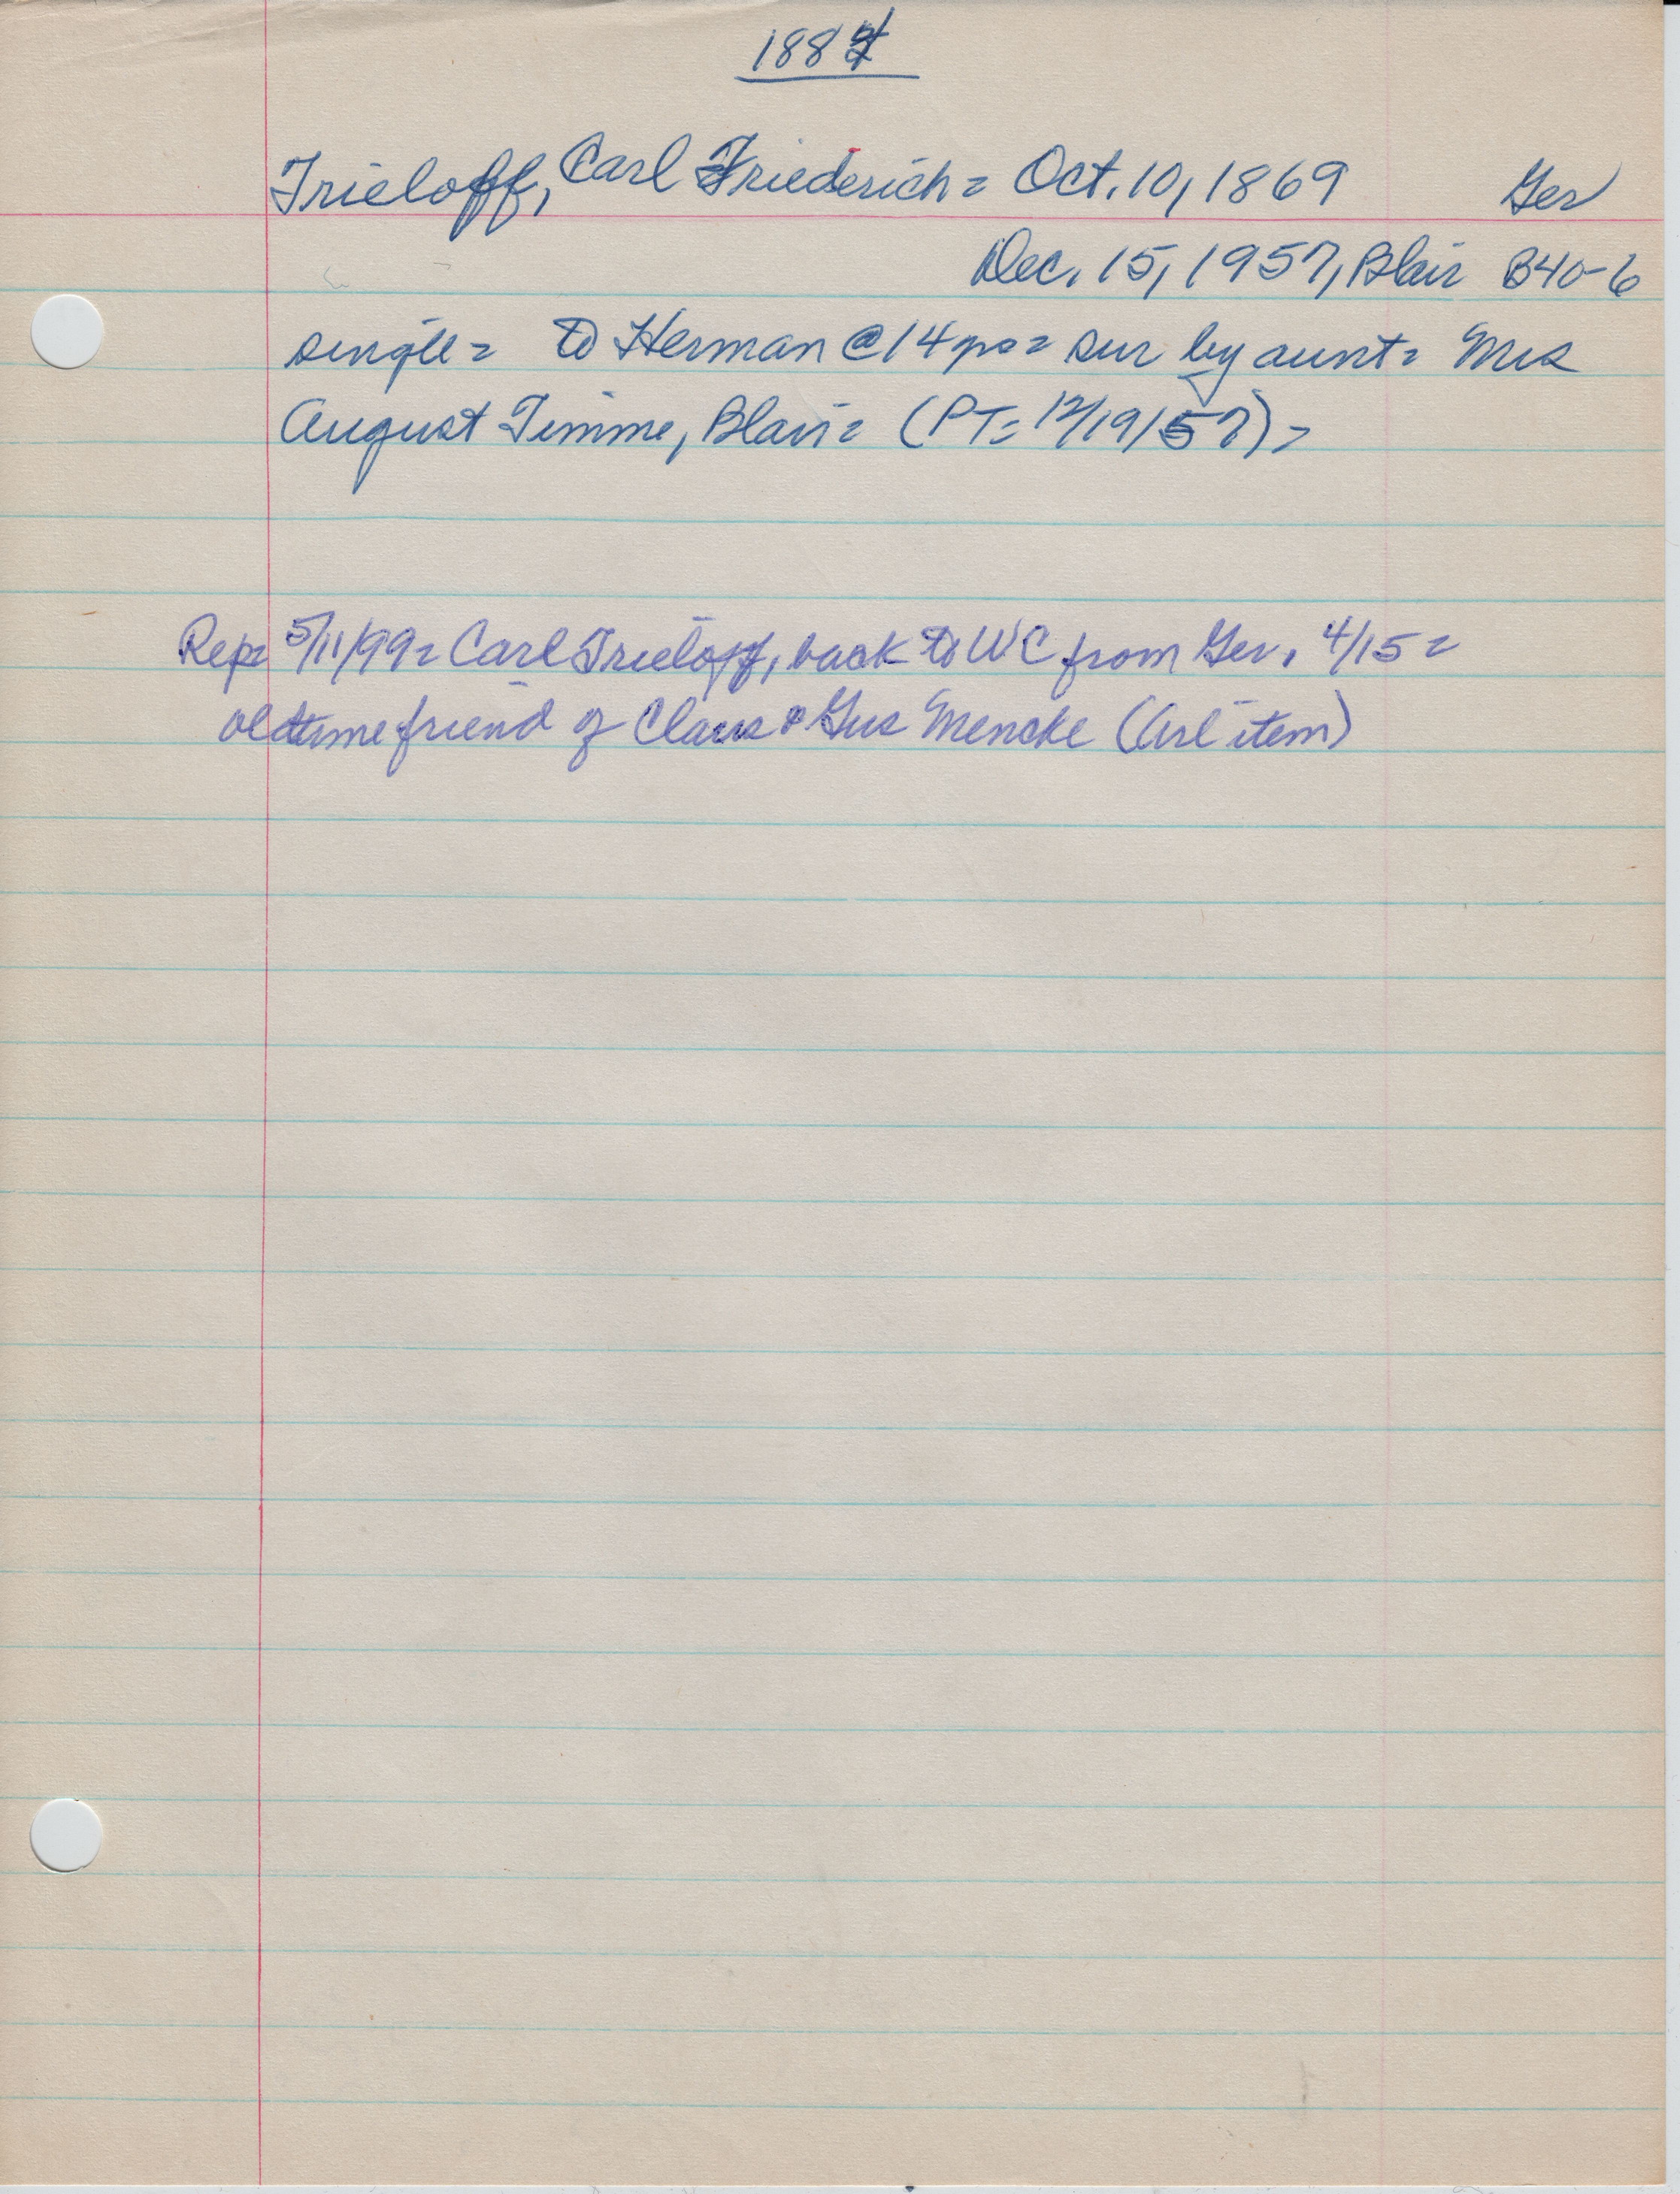 1884
Trieloff, Carl Friederich = Oct. 10, 1869 Ger
Dec. 15, 1957, Blair B40-6
single = to Herman @ 14 yrs = sur by aunt = Mrs
August Timme, Blair = (PT = 12/19/57) =
Rep = 5/11/99 = Carl Trieloff, back to WC from Ger. 4/15 =
oldtime friend of Claus & Gus Mencke (Arl item)